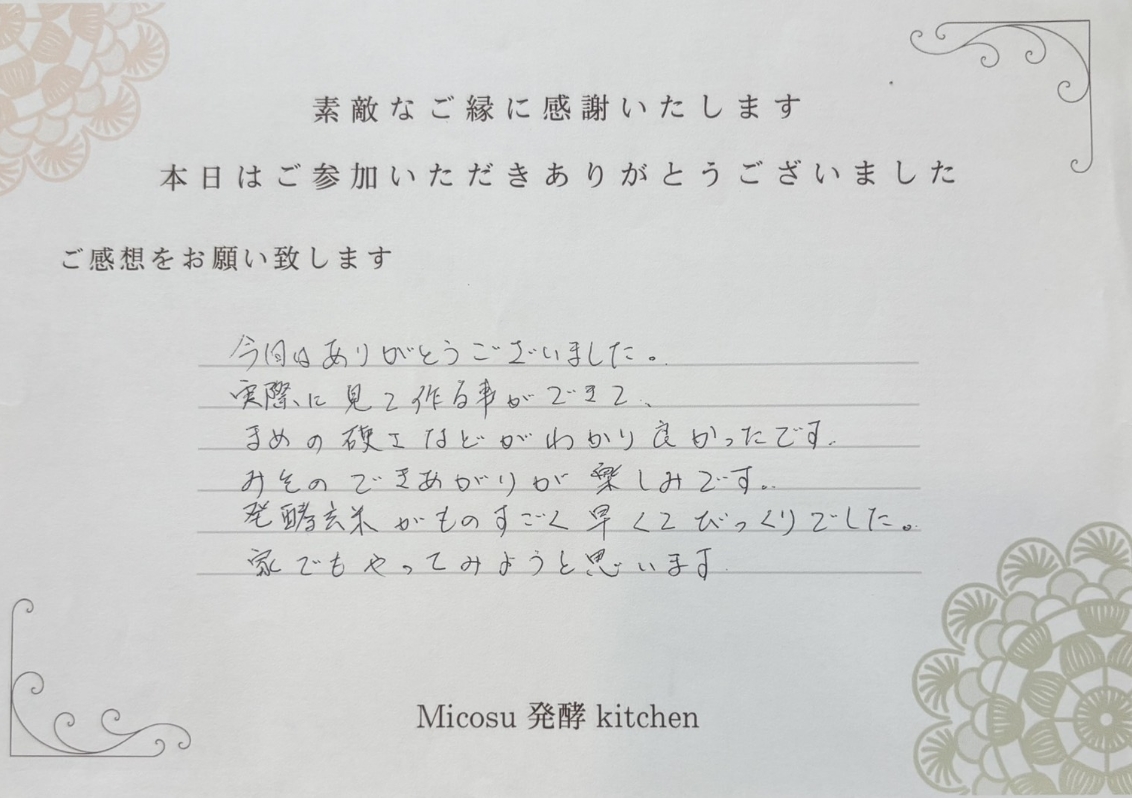 素敵なご縁に感謝いたします
本日はご参加いただきありがとうございました
ご感想をお願い致します
今回はありがとうございました。
実際に見て作る事ができて、
まめの硬さなどがわかり良かったです。
みそのできあがりが楽しみです。
発酵玄米がものすごく早くてびっくりでした。
家でもやってみようと思います
Micosu 発酵 kitchen